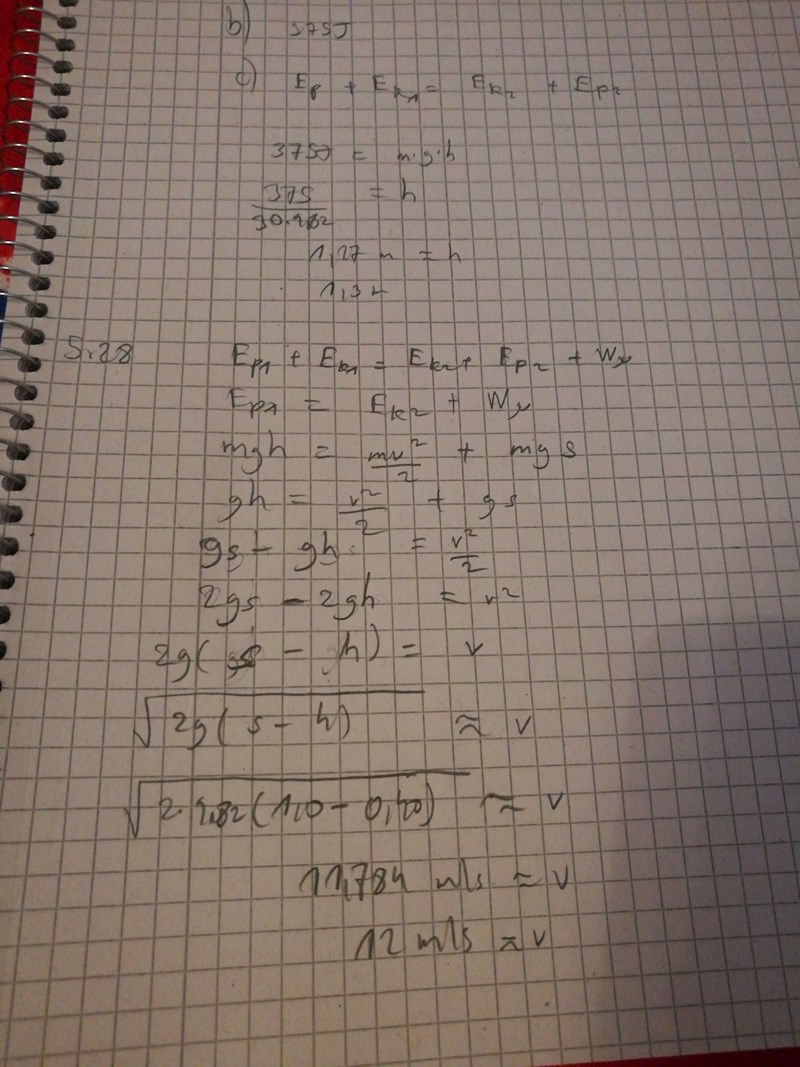 b) 375J
c) Ep + Ek1 = Ek2 + Ep2
375J = m·g·h
375/30·9,82 = h
1,27 m = h
1,3 m
5.28 Ep1 + Ek1 = Ek2 + Ep2 + Wμ
Ep1 = Ek2 + Wμ
mgh = mv²/2 + mgs
gh = v²/2 + gs
gs - gh = v²/2
2gs - 2gh = v²
2g( s - h) = v
√2g(s - h) ≈ v
√2·9,82(1,0 - 0,40) ≈ v
11,784 m/s ≈ v
12 m/s ≈ v